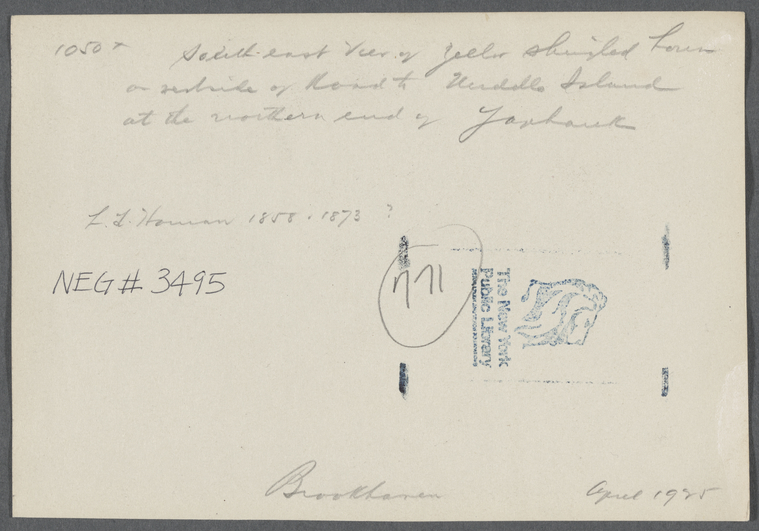 1050+ South-east View of Yellow Shingled house
on westside of Road to Middle Island
at the northern end of Yaphank
L. L. Homan 1858 . 1873 ?
NEG # 3495
The New York
Public Library
Brookhaven
April 1925